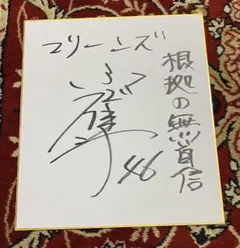 マリーンズ
根拠の無い自信
46